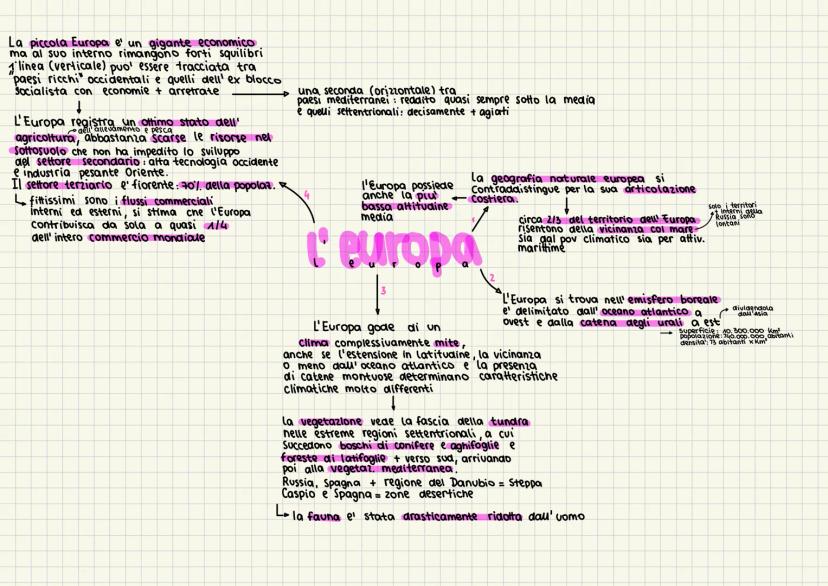 La piccola Europa e' un gigante economico
ma al suo interno rimangono forti squilibri
1 linea (verticale) puo' essere tracciata tra
"paesi ricchi" occidentali e quelli dell' ex blocco
socialista con economie + arretrate
una seconda (orizzontale) tra
paesi mediterranei: reddito quasi sempre sotto la media
e quelli settentrionali: decisamente + agiati
L'Europa registra un ottimo stato dell'
dell'allevamento e pesca
agricoltura, abbastanza scarse le risorse nel
sottosuolo che non ha impedito lo sviluppo
del settore secondario: alta tecnologia occidente
e industria pesante Oriente.
Il settore terziario e' fiorente: 70% della popolaz.
fittissimi sono i flussi commerciali
interni ed esterni, si stima che l'Europa
contribuisca da sola a quasi 1/4
dell'intero commercio mondiale
4
L'Europa
L' europa
1
La geografia naturale europea si
contraddistingue per la sua articolazione
costiera.
l'Europa possiede
anche la piu'
bassa altitudine
media
circa 2/3 del territorio dell'Europa
risentono della vicinanza col mare
sia dal pov climatico sia per attiv.
marittime
solo i territori
+ interni della
Russia sono
lontani
2
L'Europa si trova nell'emisfero boreale
e' delimitato dall'oceano atlantico a
ovest e dalla catena degli urali a est
dividendola
dall'asia
superficie: 10.300.000 Km²
popolazione: 740.000.000 abitanti
densita': 73 abitanti x Km²
3
L'Europa gode di un
clima complessivamente mite,
anche se l'estensione in latitudine, la vicinanza
o meno dall'oceano atlantico e la presenza
di catene montuose determinano caratteristiche
climatiche molto differenti
la vegetazione vede la fascia della tundra
nelle estreme regioni settentrionali, a cui
succedono boschi di conifere e aghifoglie e
foreste di latifoglie + verso sud, arrivando
poi alla vegetaz. mediterranea.
Russia, Spagna + regione del Danubio = Steppa
Caspio e Spagna = zone desertiche
la fauna e' stata drasticamente ridotta dall'uomo